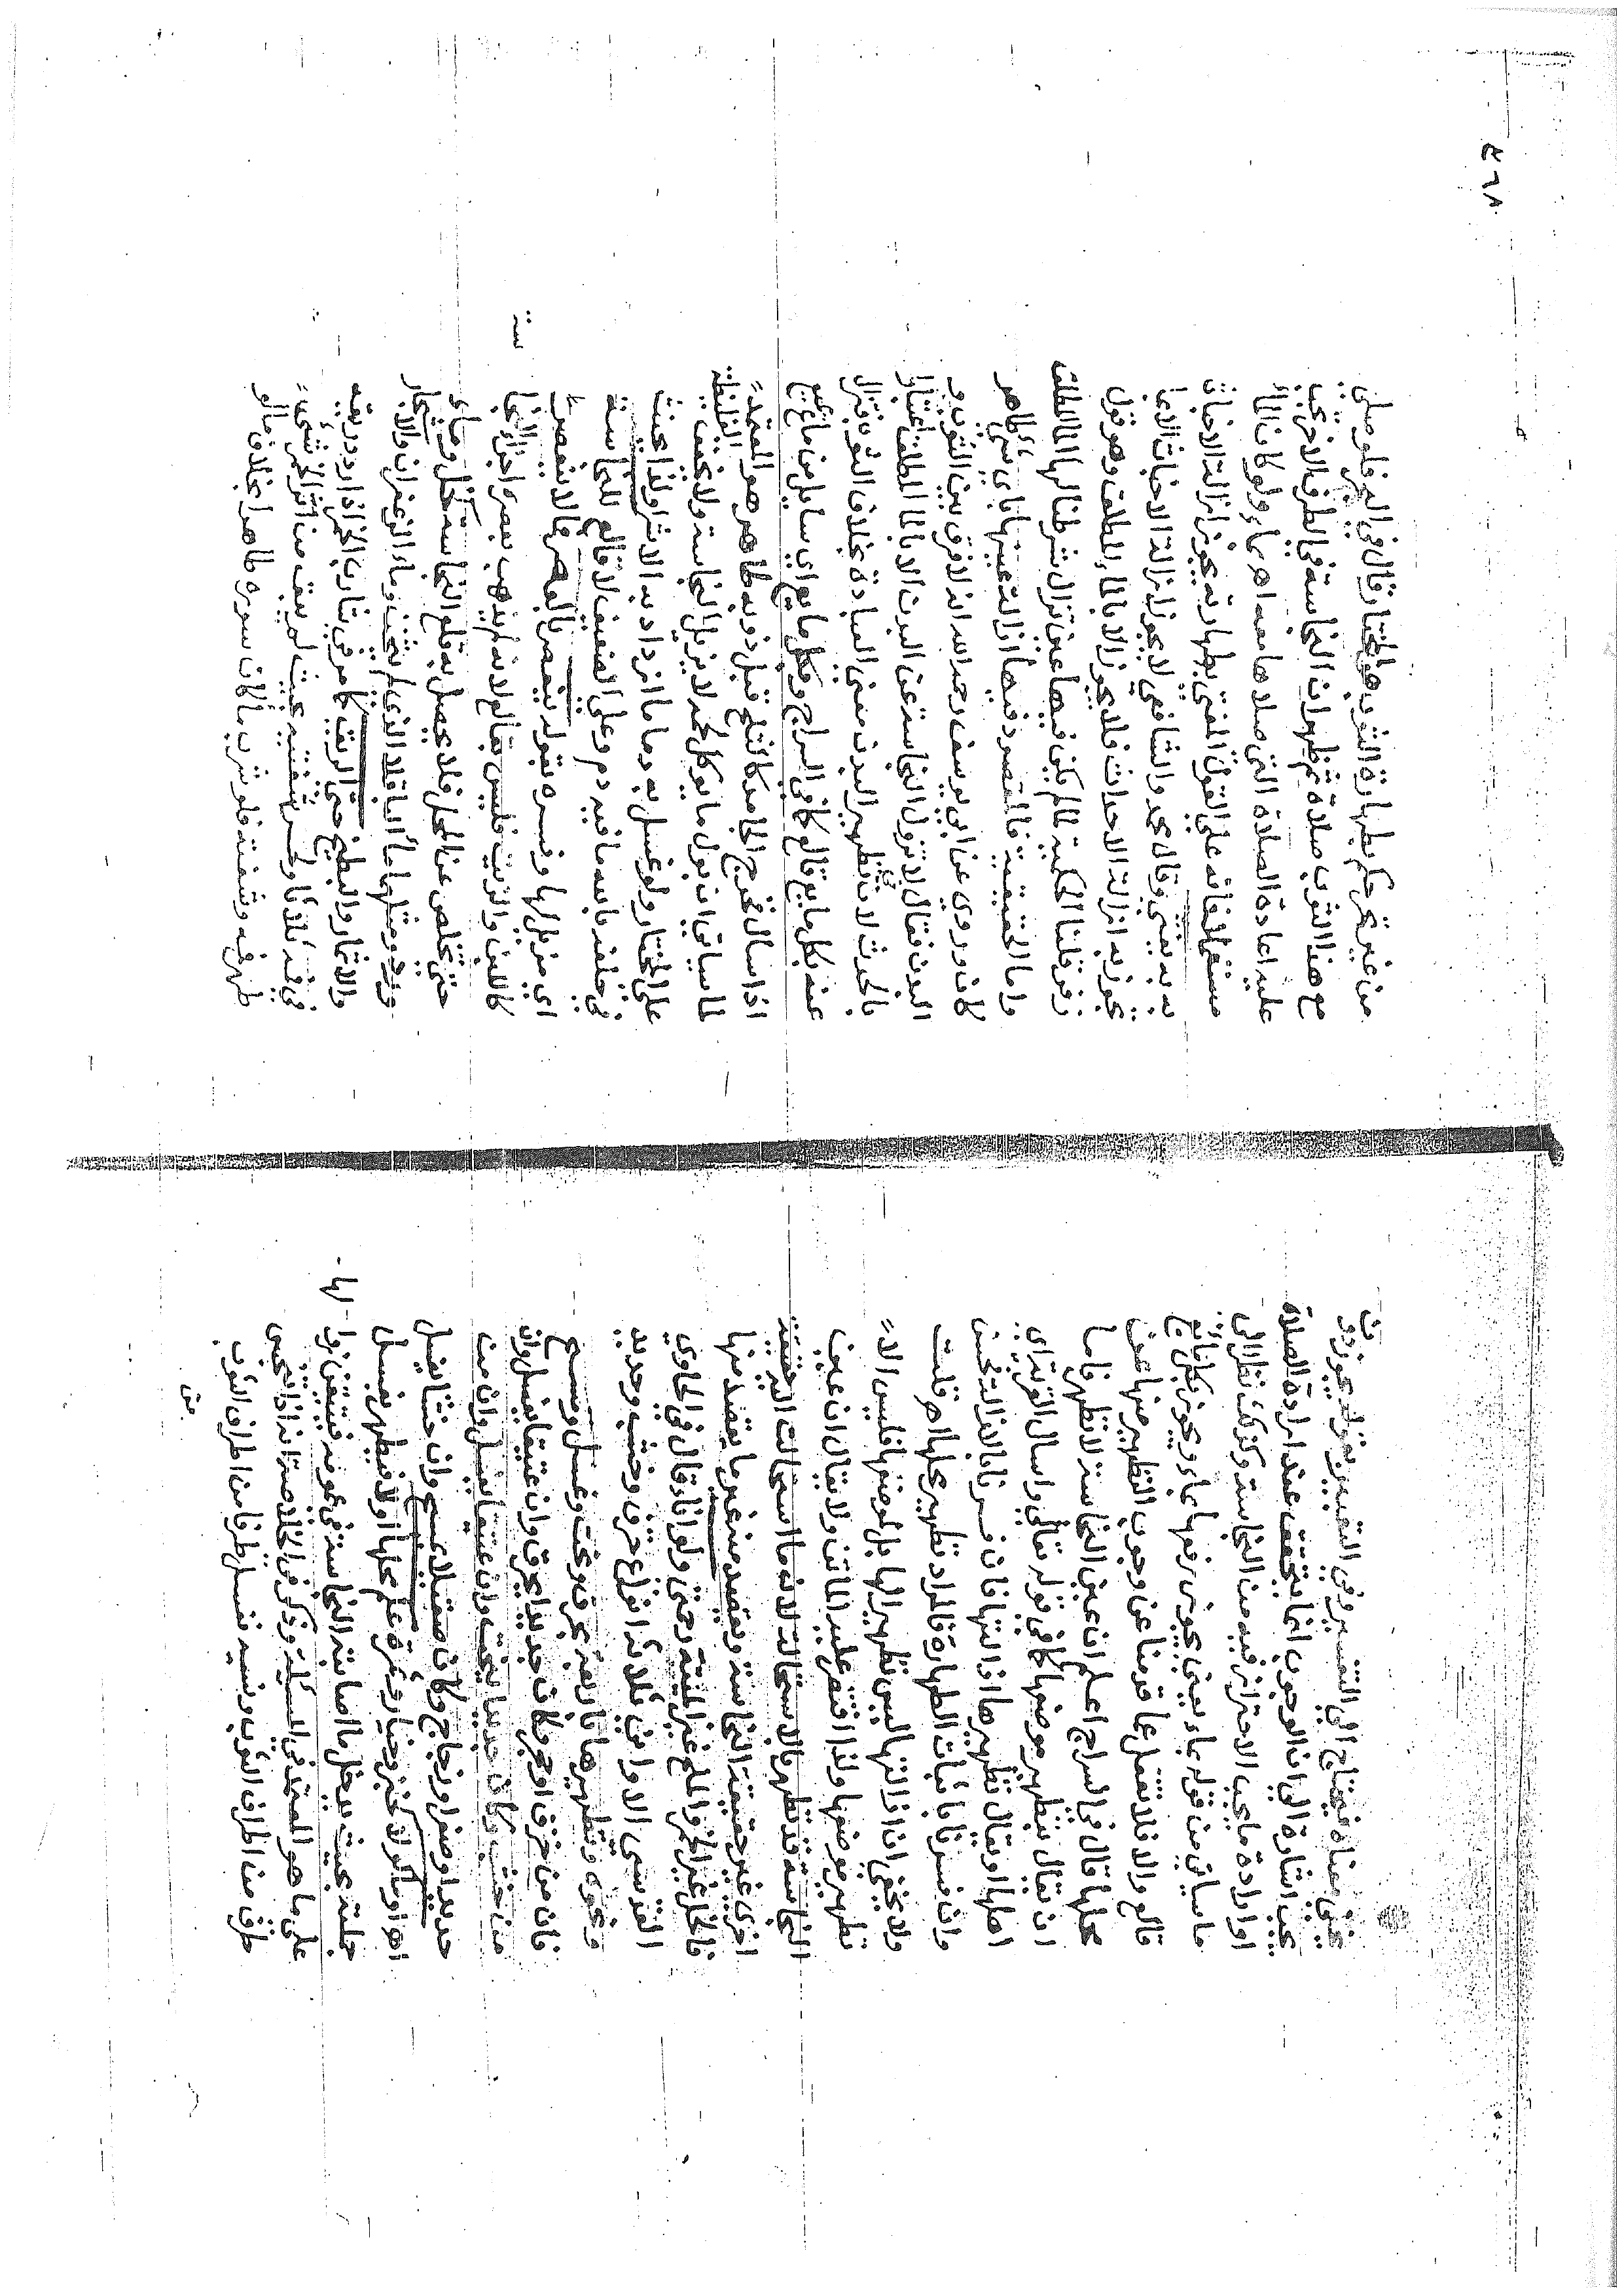 يخفى معناه فيحتاج الى التفسير وفي التعبير بقوله يجوز دون
يجب اشارة الى ان الوجوب انما يتحقق عند ارادة الصلاة
او ارادة ما يجب الاحتراز فيه من النجاسة وكذلك نظرا الى
ما سياتي من قوله بماء يعني يجوز رفعها بماء ويجوز بكل مائع
قالع والا فلا تغفل عما قدمنا عن وجوب التطهير منها عن
محلها قال في السراج اعلم ان عين النجاسة لا تطهر فاما
ان يقال بتطهير موضعها كما في قوله تعالى واسال القرية اي
اهلها او يقال تطهيرها ازالتها فان فسرنا بالازالة حسن
وان فسرنا باثبات الطهارة فالمراد تطهير محلها اهـ قلت
ولا يخفى ان ازالتها ليس تطهير الها بل لموضعها فليس الا
تطهير موضعها ولذا اقتصر عليه الماتن ولا يقال ان عين
النجاسة قد تطهر بالاستحالة لانه ما استحالت الى حقيقة
اخرى غير حقيقة النجاسة ويقصد منه غير ما يقصد منها
كالخل غير الخمر والملح غير الميتة وحتى ولو اناء قال في الحاوي
القدسي الاواني ثلاثة انواع خزف وخشب وحديد
ونحوه وتطهيرها باربعة بحرق ونحت وغسل ومسح
فان من خزف او حجر وكان جديدا يحرق وان عتيقا يغسل وان
من خشب وكان جديدا ينحت وان عتيقا يغسل وان من
حديد او صفر او زجاج وكان صقيلا يمسح وان خشنا يغسل
اهـ او ماكولا كخبز وخيار وثمرة علم محلها اولا فيطهر بغسل
جملته بحيث يدخل ما اصابته النجاسة في عمومه فيتيقن زوالها
على ما هو المعتمد في المسئلة وذكر في الخلاصة انه اذا تنجس
طرف من اطراف الثوب ونسيه فغسل طرفا من اطراف الثوب
من
من غير تحر حكم بطهارة الثوب هو المختار وقال في البحر فلو صلى
مع هذا الثوب صلاة ثم ظهر ان النجاسة في الطرف الاخر يجب
عليه اعادة الصلاة التي صلاها معه اهـ بماء ولو كان الماء
مستعملا فانه على القول المفتى بطهارته يجوز ازالة الاخباث
به به يفتى وقال محمد والشافعي لا يجوز ازالة الاخباث الا بما
تجوز به ازالة الاحداث فلا يجوز الا بالماء المطلق وهو قول
زفر قلنا الحكمية لما لم يكن فيها عين تزال شرطنا لها الماء المطلق
واما الحقيقية فالمقصود فيها ازالة عينها باي شيء طاهر
كان وروي عن ابي يوسف رحمه الله انه لا فرق بين الثوب و
البدن فقال لا تزول النجاسة عن البدن الا بالماء المطلق اعتبارا
بالحدث لان تطهير البدن معنى العبادة بخلاف الثوب فتزال
عنه بكل مايع قالع كما في السراج وبكل مايع اي سايل من ماع يميع
اذا سال فخرج الجامد كالثلج قبل ذوبه طاهر هو المعتمد
لما سياتي ان بول ما يوكل لحمه لا يزيل النجاسة ولا تخفيف الغليظة
على المختار ولو غسل به دما ازداد به الا شرا ولذا يحنث
في حلفه بانه ما فيه دم وعلى الضعيف لا قالع للنجاسة
اي مزيل لها وفسره بقوله ينعصر بالعصر فما لا ينعصر
كاللبن والزيت فليس بقالع لانه لم يذهب بعصره اجزاء النجاسة
حتى يتخلص عن المحل فلا يحصل به قلع النجاسة كخل وماء
ورد ومثلهما ماء الباقلا الذي لم يثخن وماء الزعفران والاشجار
والاثمار والبطيخ حتى الريق كما مر في شارب الخمر اذا ردد ريقه
في فمه ثلاثا ولحس شفتيه بحيث لم يبق من اثر الخمر شيء
طهر فمه وشفته فلو شرب ماء كان سوره طاهرا بخلاف ما لو